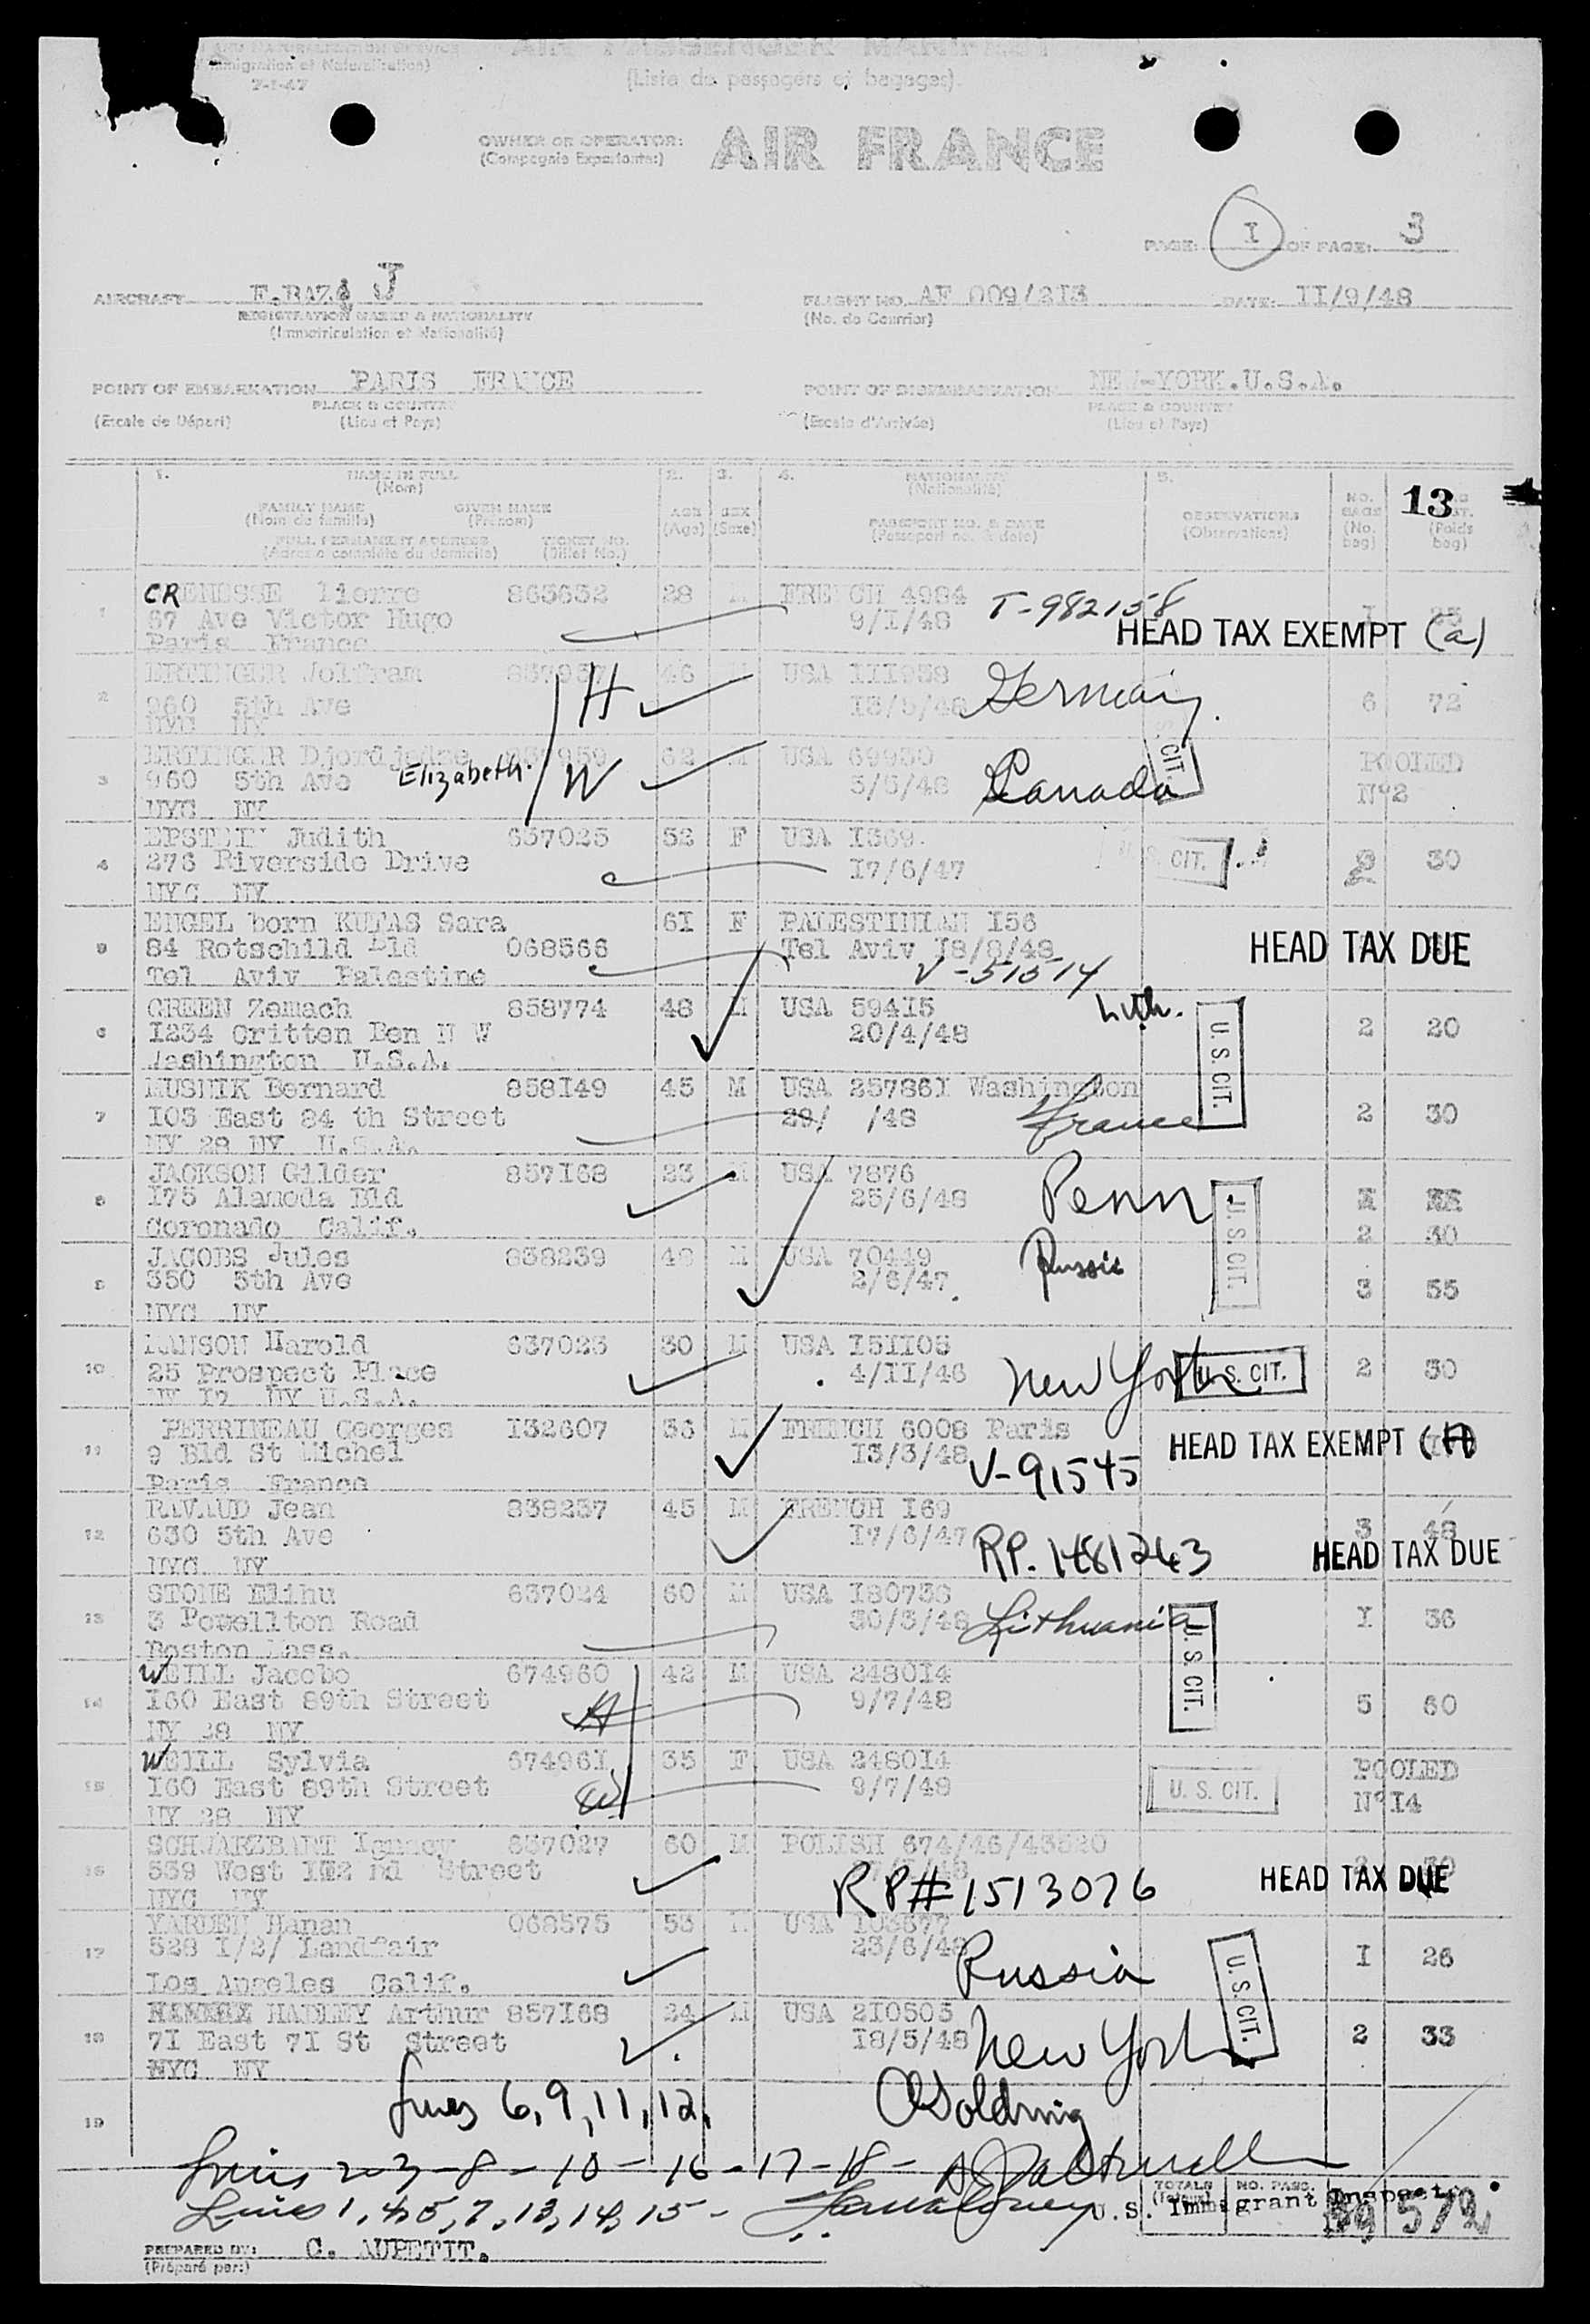 AND NATURALIZATION SERVICE
(Immigration et Naturalisation)
7-1-47
AIR PASSENGER MANIFEST
(Liste de passagers et bagages)
OWNER OR OPERATOR: AIR FRANCE
(Compagnie Exportante:)
PAGE: I OF PAGE: 3
AIRCRAFT J FLIGHT NO. AF 009/213 DATE: II/9/48
REGISTRATION MARKS & NATIONALITY (No. de Courrier)
(Immatriculation et Nationalité)
POINT OF EMBARKATION PARIS FRANCE POINT OF DISEMBARKATION NEW-YORK.U.S.A.
PLACE & COUNTRY PLACE & COUNTRY
(Escale de Départ) (Lieu et Pays) (Escale d'Arrivée) (Lieu et Pays)
1. NAME IN FULL 2. 3. 4. NATIONALITY 5.
(Nom) (Nationalité) NO. 13
FAMILY NAME GIVEN NAME AGE SEX BAGS
(Nom de famille) (Prénom) (Age) (Sexe) PASSPORT NO. & DATE OBSERVATIONS (No. (Poids
FULL PERMANENT ADDRESS TICKET NO. (Passeport no. & date) (Observations) bag) bag)
(Adresse complète du domicile) (Billet No.)
1 CRENESSE Pierre 863632 28 M FRENCH 4984 T-982158
67 Ave Victor Hugo 9/I/48 HEAD TAX EXEMPT (a)
Paris France
2 ERTINGER Wolfram 857957 46 USA III958 Germany
960 5th Ave H 13/5/48 6 72
NYC NY
3 ERTINGER 62 USA 69930 POOLED
960 5th Ave Elizabeth W 5/5/48 Canada CIT. N°2
NYC NY
4 EPSTEIN Judith 637025 52 F USA I369
276 Riverside Drive 17/6/47 U. S. CIT. 30
NYC NY
ENGEL born KUTAS Sara 6I F PALESTINIAN I56
84 Rotschild Bld 068566 Tel Aviv I8/8/48 HEAD TAX DUE
Tel Aviv Palestine V-51514
6 GREEN Zemach 858774 48 M USA 594I5 Lith.
I234 Gritten Den N W 20/4/48 U. S. CIT. 2 20
Washington U.S.A.
7 MUSNIK Bernard 858I49 45 M USA 25786I Washington
I03 East 84 th Street 29/ /48 France 2 30
NY 28 NY U.S.A.
8 JACKSON Gilder 857I68 23 M USA 7876 Penn
I75 Alameda Bld 25/6/48 U. S. CIT.
Coronado Calif. 2 30
JACOBS Jules 838239 48 M USA 70449 Russia
350 5th Ave 2/6/47 3 55
NYC NY
10 MANSON Harold 637023 30 M USA I5II05
25 Prospect Place 4/II/46 New York U. S. CIT. 2 30
NY I7 NY U.S.A.
11 PERRINEAU Georges I32607 36 M FRENCH 6008 Paris
9 Bld St Michel I3/3/48 HEAD TAX EXEMPT
Paris France V-91545
12 RAVAUD Jean 838237 45 M FRENCH I69 3 48
630 5th Ave I7/6/47 RP. 1481243 HEAD TAX DUE
NYC NY
13 STONE Elihu 637024 60 M USA I80736
3 Powellton Road 30/3/48 Lithuania U. S. CIT. I 36
Boston Mass.
14 WEILL Jacobo 674960 42 M USA 2480I4
I60 East 89th Street H 9/7/48 5 60
NY 28 NY
15 WEILL Sylvia 67496I 35 F USA 2480I4 POOLED
I60 East 89th Street W 9/7/48 U. S. CIT. N°I4
NY 28 NY
16 SCHWARZBART Ignacy 637027 60 M POLISH 674/46/43520
539 West II2 nd Street RP# 1513076 HEAD TAX DUE
NYC NY
17 YARDEN Hanan 068575 53 USA I03677
528 I/2/ Landfair 23/6/48 Russia U. S. CIT. I 26
Los Angeles Calif.
18 HADLEY Arthur 857I68 24 M USA 2I0505
7I East 7I St Street I8/5/48 New York 2 33
NYC NY
19 Lines 6, 9, 11, 12. Goldring
Lines 2-3-8-10-16-17-18-
Lines 1, 4, 5, 7, 13, 14, 15- U.S. Immigrant Inspector
TOTALS NO. PASS. 579
PREPARED BY: C. AUPETIT.
(Préparé par:)